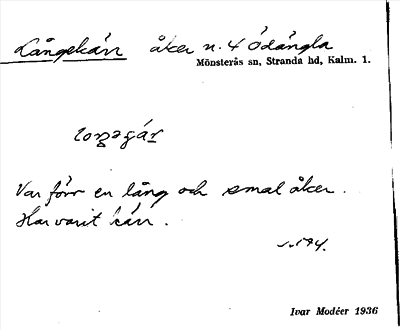 Långekärr åker n. 4 Ödängla
Mönsterås sn, Stranda hd, Kalm. 1.
Var förr en lång och smal åker.
Har varit kärr.
Ivar Modéer 1936